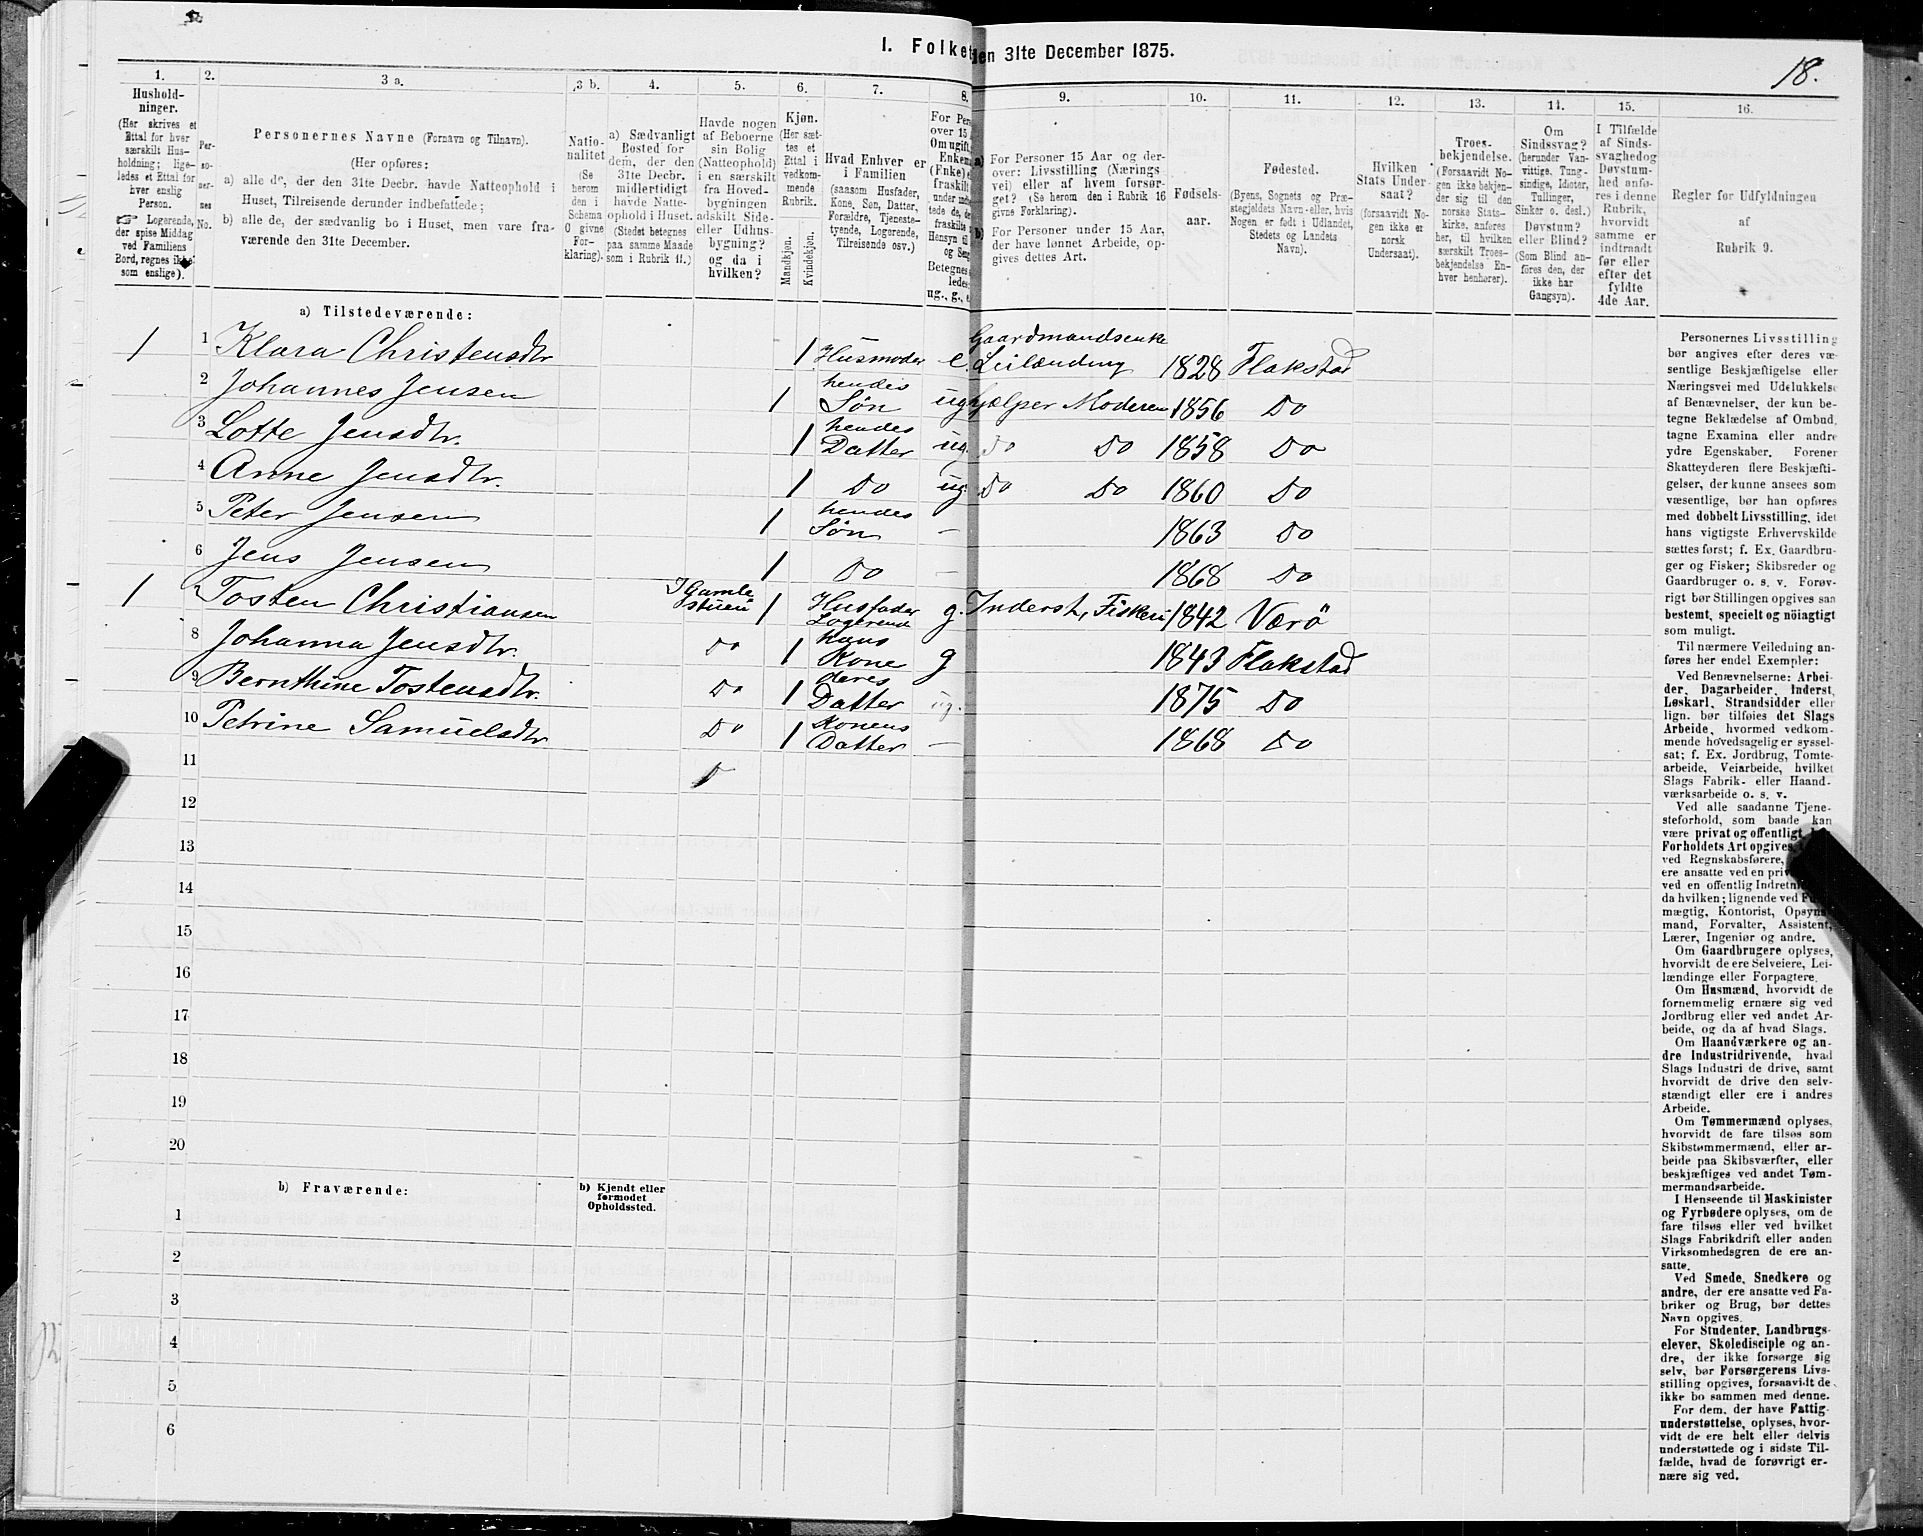 I. Folket den 31te December 1875.
18.
1.
2.
3 a.
3 b.
4.
5.
6.
7.
8.
9.
10.
11.
12.
13.
14.
15.
16.
Hushold-
ninger.
(Her skrives et
Ettal for hver
særskilt Hus-
holdning; lige-
ledes et Ettal for
hver enslig
Person.
☞ Logerende,
der spise Middag
ved Familiens
Bord, regnes ikke
som enslige).
Per-
so-
ner-
nes
No.
Personernes Navne (Fornavn og Tilnavn).
(Her opføres:
a) alle de, der den 31te Decbr. havde Natteophold i
Huset, Tilreisende derunder indbefattede;
b) alle de, der sædvanlig bo i Huset, men vare fra-
værende den 31te December.
Natio-
nalitet
(Se
herom
den i
Schema
O givne
For-
klaring).
a) Sædvanligt
Bosted for
dem, der den
31te Decbr.
midlertidigt
havde Natte-
ophold i Huset.
(Stedet betegnes
paa samme Maade
som i Rubrik 11.)
Havde nogen
af Beboerne
sin Bolig
(Natteophold)
i en særskilt
fra Hoved-
bygningen
adskilt Side-
eller Udhus-
bygning?
og da i
hvilken?
Kjøn.
(Her sæt-
tes et
Ettal i
vedkom-
mende
Rubrik.
Mandkjøn.
Kvindekjøn.
Hvad Enhver er
i Familien
(saasom Husfader,
Kone, Søn, Datter,
Forældre, Tjeneste-
tyende, Logerende,
Tilreisende osv.)
For Per
over 15
Om ugift,
Enkem
(Enke) e
fraskilt
under
tede de, de
fraskilte
Hensyn til
og Seng
Betegnes
ledes:
ug., g., e
a)
For Personer 15 Aar og der-
over: Livsstilling (Nærings
vei) eller af hvem forsør-
get? (Se herom den i Rubrik 16
givne Forklaring).
b)
For Personer under 15 Aar,
der have lønnet Arbeide, op-
gives dettes Art.
Fødsels-
aar.
Fødested.
(Byens, Sognets og Præ-
stegjeldets Navn - eller, hvis
Nogen er født i Udlandet,
Stedets og Landets
Navn).
Hvilken
Stats Under-
saat?
(forsaavidt No-
gen ikke er
norsk
Undersaat).
Troes-
bekjendelse.
(Forsaavidt No-
gen ikke bekjen-
der sig til den
norske Stats-
kirke, anføres
her, til hvilken
særskilt Troes-
bekjendelse En-
hver henhører).
Om
Sindssvag?
(herunder Van-
vittige, Tung-
sindige, Idioter,
Sinker o. desl.)
Døvstum?
eller Blind?
(Som Blind an-
føres den, der
ikke har
Gangsyn).
I Tilfælde
af Sinds-
svaghed og
Døvstum-
hed anfø-
res i denne
Rubrik,
hvorvidt
samme er
indtraadt
før eller
efter det
fyldte
4de Aar.
Regler for Udfyldningen
af
Rubrik 9.
a) Tilstedeværende:
1 1 Klara Christensdtr 1 Husmoder e. Gaardmandsenke Leilænding 1828 Flakstad
2 Johannes Jensen 1 hendes Søn ug hjælper Moderen 1856 Do
3 Lotte Jensdtr. 1 hendes Datter ug. Do Do 1858 Do
4 Anne Jensdtr. 1 Do ug. Do Do 1860 Do
5 Peter Jensen 1 hendes Søn – 1863 Do
6 Jens Jensen 1 Do – 1868 Do
1 7 Tosten Christiansen I Gamle stuen 1 Husfader Logerende g. Inderst, Fiskeri 1842 Værö
8 Johanna Jensdtr. Do 1 hans Kone g 1843 Flakstad
9 Bernthine Tostensdtr. Do 1 deres Datter ug. 1875 Do
10 Petrine Samuelsdtr Do 1 Konens Datter – 1868 Do
11
12
13
14
15
16
17
18
19
20
b) Fraværende:
b) Kjendt eller
formodet
Opholdssted.
1
2
3
4
5
6
Personernes Livsstilling
bør angives efter deres væ-
sentlige Beskjæftigelse eller
Næringsvei med Udelukkelse
af Benævnelser, der kun be-
tegne Beklædelse af Ombud,
tagne Examina eller andre
ydre Egenskaber. Forener
Skatteyderen flere Beskjæfti-
gelser, der kunne ansees som
væsentlige, bør han opføres
med dobbelt Livsstilling, idet
hans vigtigste Erhvervskilde
sættes først; f. Ex. Gaardbru-
ger og Fisker; Skibsreder og
Gaardbruger o. s. v. Forøv-
rigt bør Stillingen opgives saa
bestemt, specielt og nöiagtigt
som muligt.
Til nærmere Veiledning an-
føres her endel Exempler:
Ved Benævnelserne: Arbei-
der, Dagarbeider, Inderst,
Løskarl, Strandsidder eller
lign. bør tilføies det Slags
Arbeide, hvormed vedkom-
mende hovedsagelig er syssel-
sat; f. Ex. Jordbrug, Tomte-
arbeide, Veiarbeide, hvilket
Slags Fabrik- eller Haand-
værksarbeide o. s. v.
Ved alle saadanne Tjene-
steforhold, som baade kan
være privat og offentligt,
Forholdets Art opgives,
ved Regnskabsførere,
ere ansatte ved en priv
ved en offentlig Indretn
da hvilken; lignende ved
mægtig, Kontorist, Opsyns-
mand, Forvalter, Assistent,
Lærer, Ingeniør og andre.
Om Gaardbrugere oplyses,
hvorvidt de ere Selveiere, Lei-
lændinge eller Forpagtere.
Om Husmænd, hvorvidt de
fornemmelig ernære sig ved
Jordbrug eller ved andet Ar-
beide, og da af hvad Slags.
Om Haandværkere og an-
dre Industridrivende, hvad
Slags Industri de drive, samt
hvorvidt de drive den selv-
stændigt eller ere i andres
Arbeide.
Om Tømmermænd oplyses,
hvorvidt de fare tilsøs som
Skibstømmermænd, eller ar-
beide paa Skibsværfter, eller
beskjæftiges ved andet Tøm-
mermandsarbeide.
I Henseende til Maskinister
og Fyrbødere oplyses, om de
fare tilsøs eller ved hvilket
Slags Fabrikdrift eller anden
Virksomhedsgren de ere an-
satte.
Ved Smede, Snedkere og
andre, der ere ansatte ved Fa-
briker og Brug, bør dettes
Navn opgives.
For Studenter, Landbrugs-
elever, Skoledisciple og an-
dre, der ikke forsørge sig
selv, bør Forsørgerens Livs-
stilling opgives, forsaavidt de
ikke bo sammen med denne.
For dem, der have Fattig-
understøttelse, oplyses, hvor-
vidt de ere helt eller delvis
understøttede og i sidste Til-
fælde, hvad de forøvrigt er-
nære sig ved.